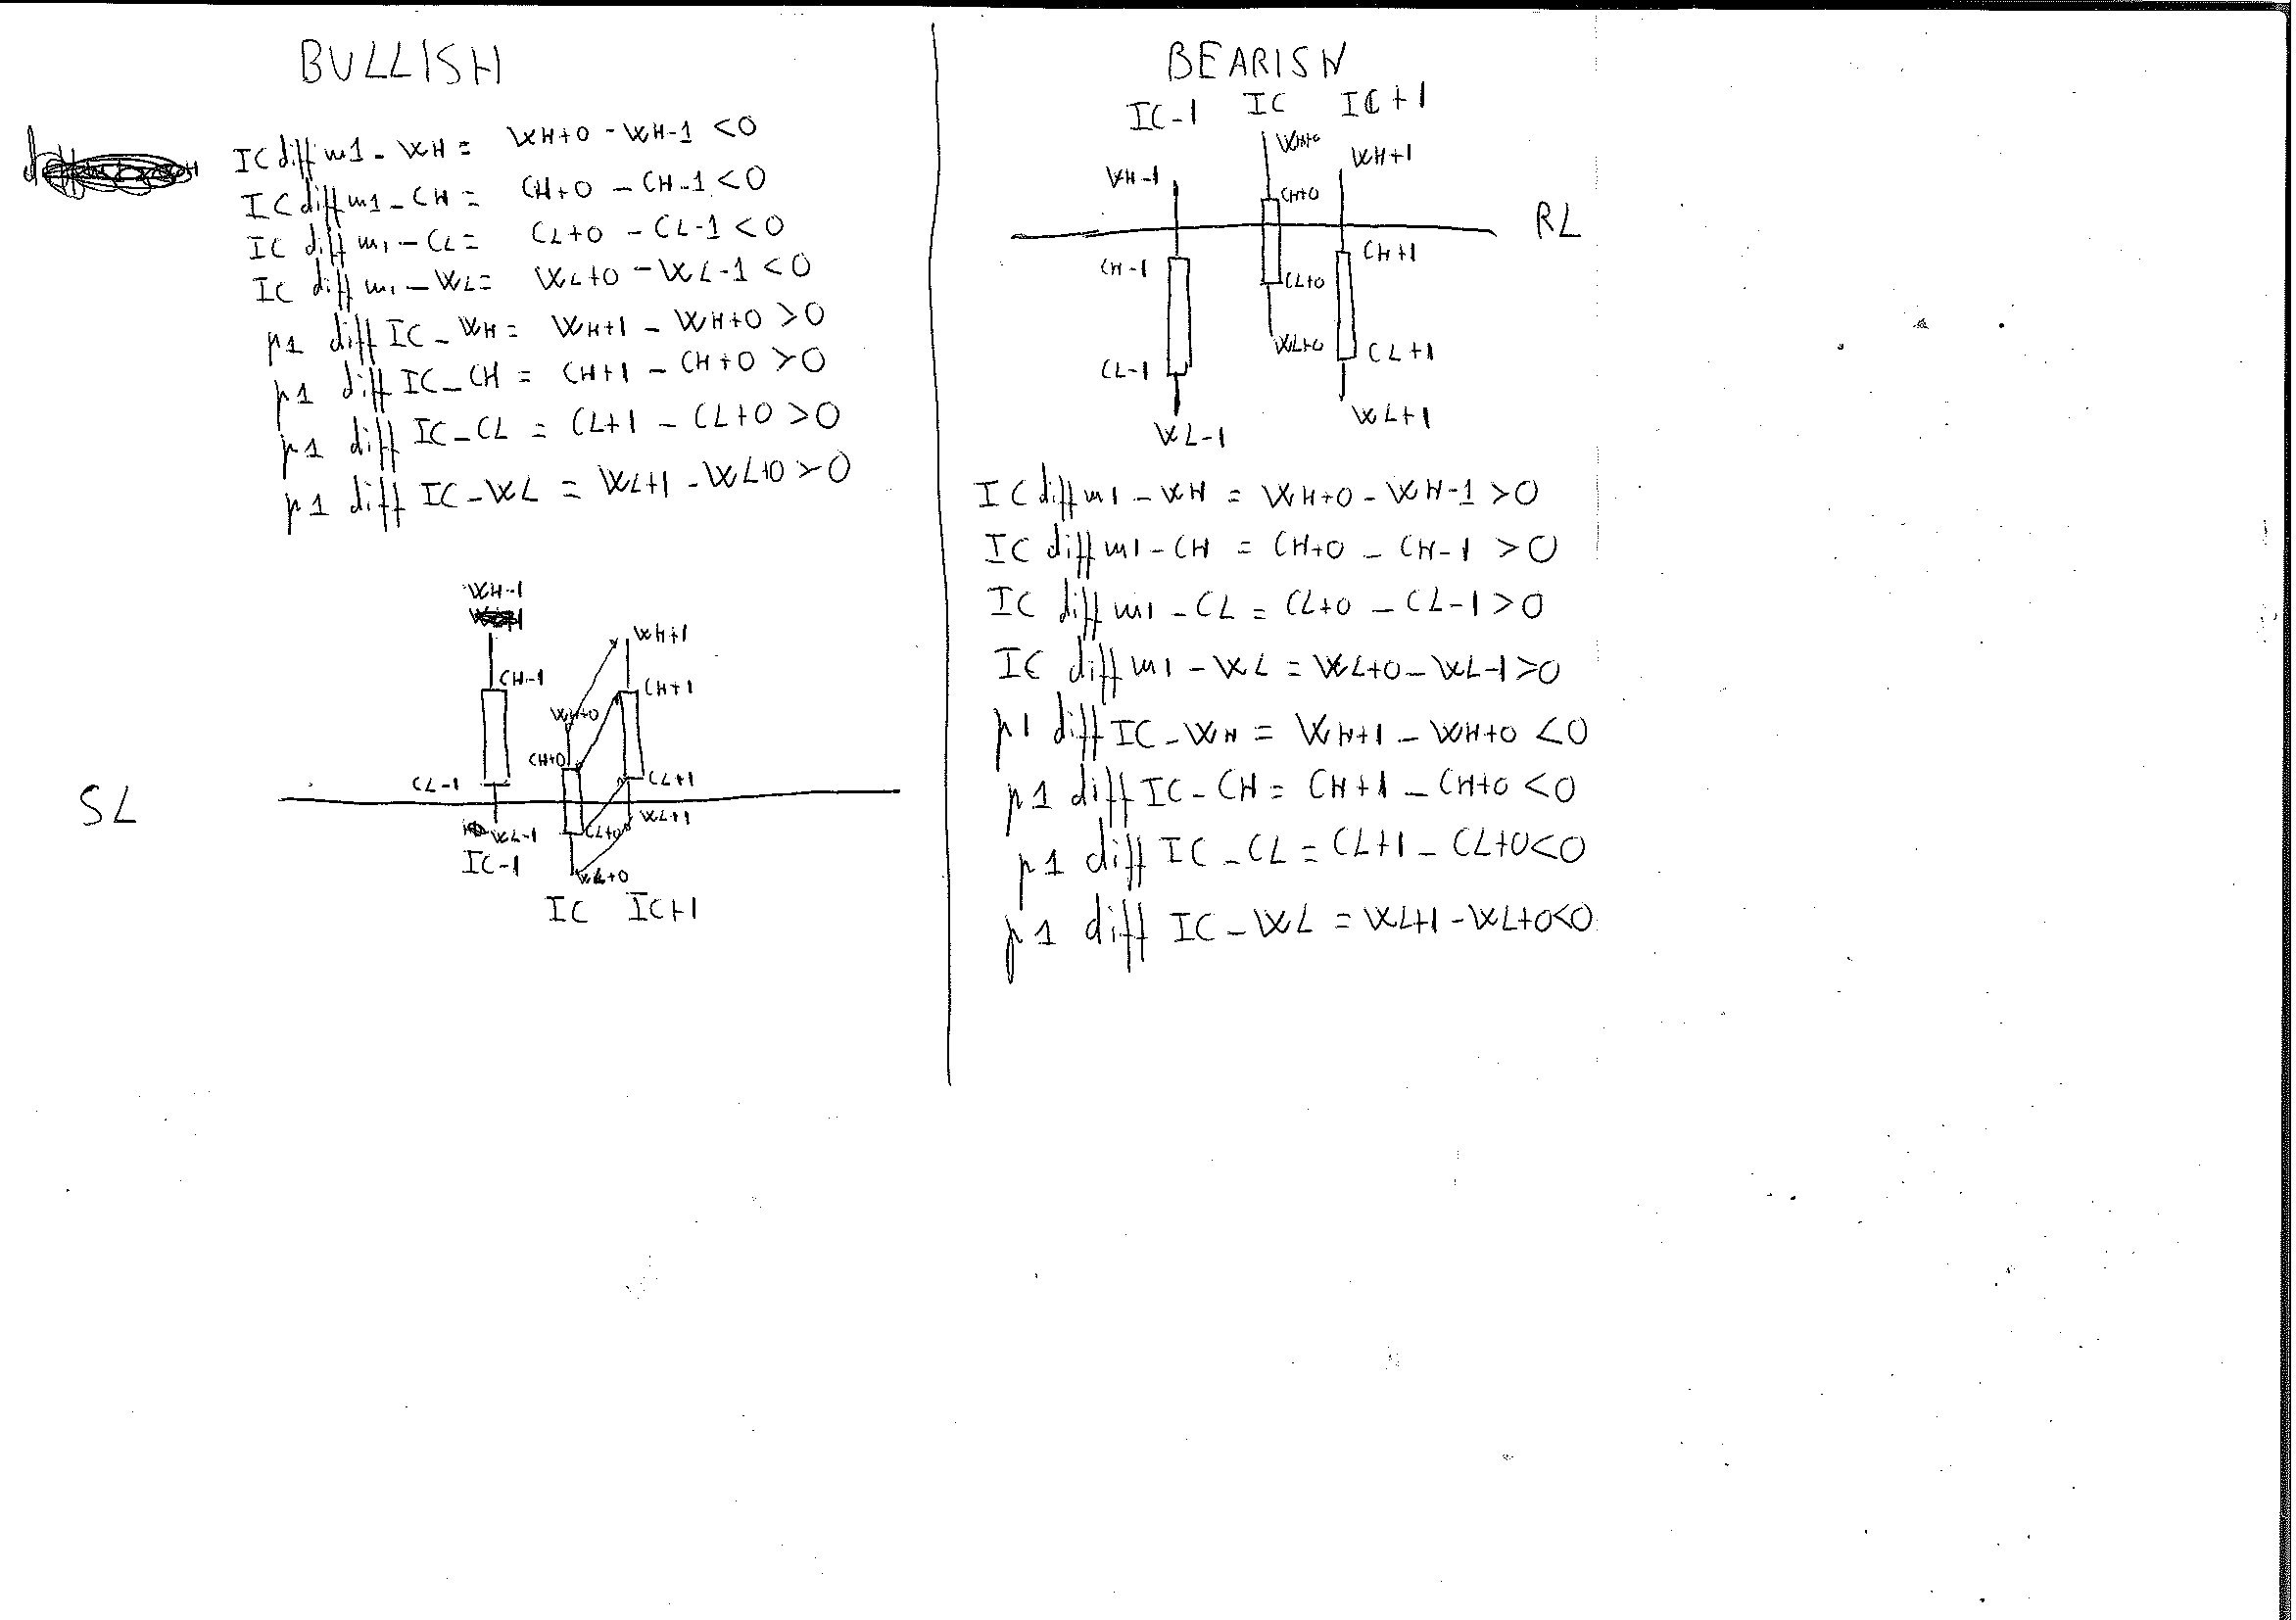 BULLISH
ICdiffm1-WH = WH+0 - WH-1 <0
ICdiffm1-CH = CH+0 - CH-1 <0
IC diff m1-CL = CL+0 - CL-1 <0
IC diff m1-WL = WL+0 - WL-1 <0
p1 diff IC-WH = WH+1 - WH+0 >0
p1 diff IC-CH = CH+1 - CH+0 >0
p1 diff IC-CL = CL+1 - CL+0 >0
p1 diff IC-WL = WL+1 - WL+0 >0
WH-1
Wh+1
CH-1
CH+1
WH+0
CH+0
CL-1
CL+1
SL
WL+1
WL-1
CL+0
IC-1
WL+0
IC IC+1
BEARISH
IC-1 IC IC+1
WH+0
WH+1
WH-1
CH+0
RL
CH-1
CH+1
CL+0
WL+0
CL+1
CL-1
WL+1
WL-1
ICdiff m1-WH = WH+0 - WH-1 >0
IC diff m1-CH = CH+0 - CH-1 >0
IC diff m1-CL = CL+0 - CL-1 >0
IC diff m1-WL = WL+0 - WL-1 >0
p1 diff IC-WH = WH+1 - WH+0 <0
p1 diff IC-CH = CH+1 - CH+0 <0
p1 diff IC-CL = CL+1 - CL+0 <0
p1 diff IC-WL = WL+1 - WL+0 <0